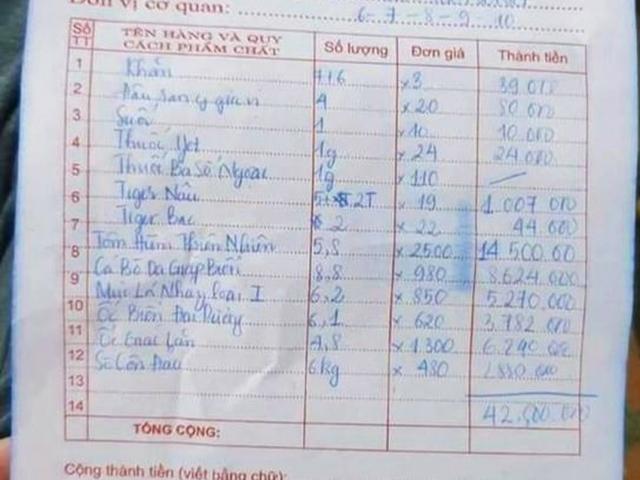 Đơn vị cơ quan: 6-7-8-9-10
Số TT TÊN HÀNG VÀ QUY CÁCH PHẨM CHẤT Số lượng Đơn giá Thành tiền
1 Khăn ×3 39.000
2 4 ×20 80 000
3 Suối 1 ×10 10.000
4 Thuốc Jet 1g ×24 24.000
5 Thuốc Ba Số Ngoại 1g ×110
6 Tiger Nâu 2T × 19 1.007 000
7 Tiger Bạc 2 × 22 44.000
8 Tôm Hùm Thiên Nhiên 5,8 ×2500 14 500.00
9 Cá Bò Da Giáp Biển 8,8 × 980 8.624.000
10 Mực Lá Nhảy Loại I 6,2 × 850 5.270.000
11 Ốc Biển 6,1 × 620 3.782 000
12 Ốc 4,8 × 1300 6.240 000
13 Sò 6kg × 480 2.880 000
14 42.600.000
TỔNG CỘNG:
Cộng thành tiền (viết bằng chữ):